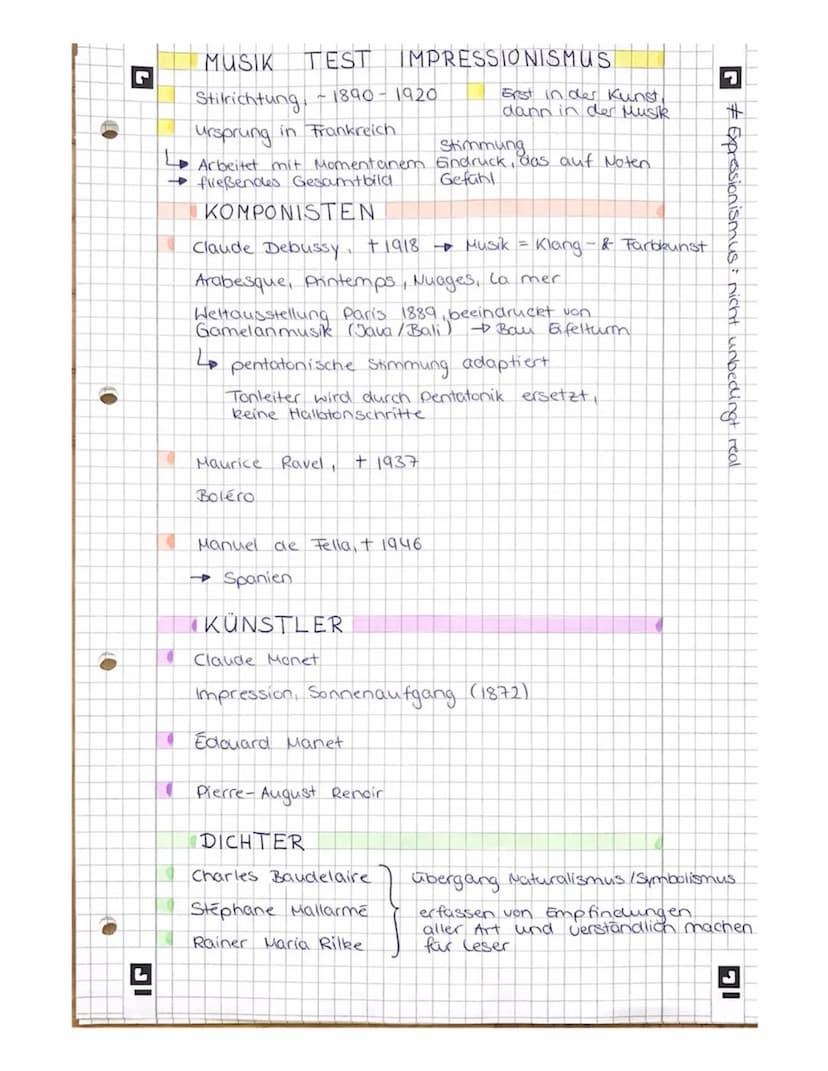 MUSIK TEST IMPRESSIONISMUS
Stilrichtung, ~ 1890 - 1920
Erst in der Kunst,
dann in der Musik
Ursprung in Frankreich
Stimmung
↳ Arbeitet mit Momentanem Eindruck, das auf Noten
→ fließendes Gesamtbild Gefühl
KOMPONISTEN
Claude Debussy, † 1918 → Musik = Klang- & Farbkunst
Arabesque, Printemps, Nuages, La mer
Weltausstellung Paris 1889, beeindruckt von
Gamelanmusik (Java/Bali) → Bau Eifelturm
↳ pentatonische Stimmung adaptiert
Tonleiter wird durch Pentatonik ersetzt,
keine Halbtonschritte
Maurice Ravel, † 1937
Boléro
Manuel de Fella, † 1946
→ Spanien
KÜNSTLER
Claude Monet
Impression, Sonnenaufgang (1872)
Édouard Manet
Pierre-August Renoir
DICHTER
Charles Baudelaire
Stéphane Mallarmé
Rainer Maria Rilke
Übergang Naturalismus/Symbolismus
erfassen von Empfindungen
aller Art und verständlich machen
für Leser
# Expressionismus: nicht unbedingt real